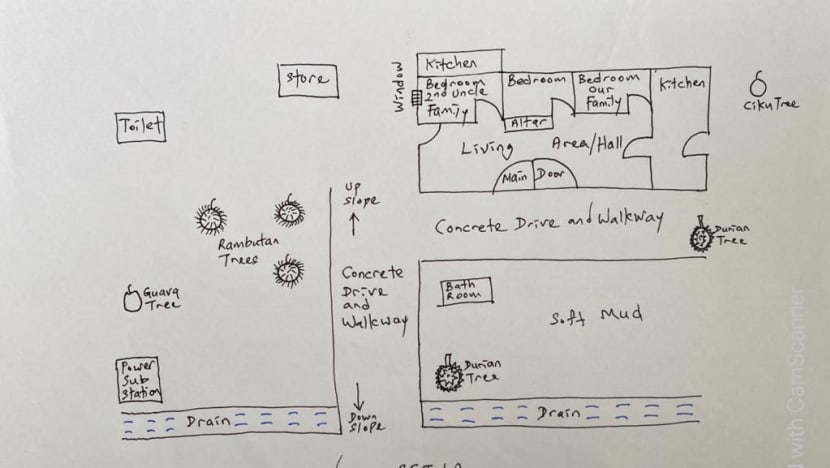 Kitchen
Store
Window
Bedroom
2nd Uncle
Family
Bedroom
Bedroom
our
Family
Kitchen
Ciku Tree
Toilet
Altar
Living Area/Hall
Main Door
Up
Slope
Rambutan
Trees
Concrete Drive and Walkway
Durian
Tree
Guava
Tree
Concrete
Drive
and
Walkway
Bath
Room
Soft Mud
Power
Sub
Station
Durian
Tree
Drain
Down
Slope
Drain
with CamScanner